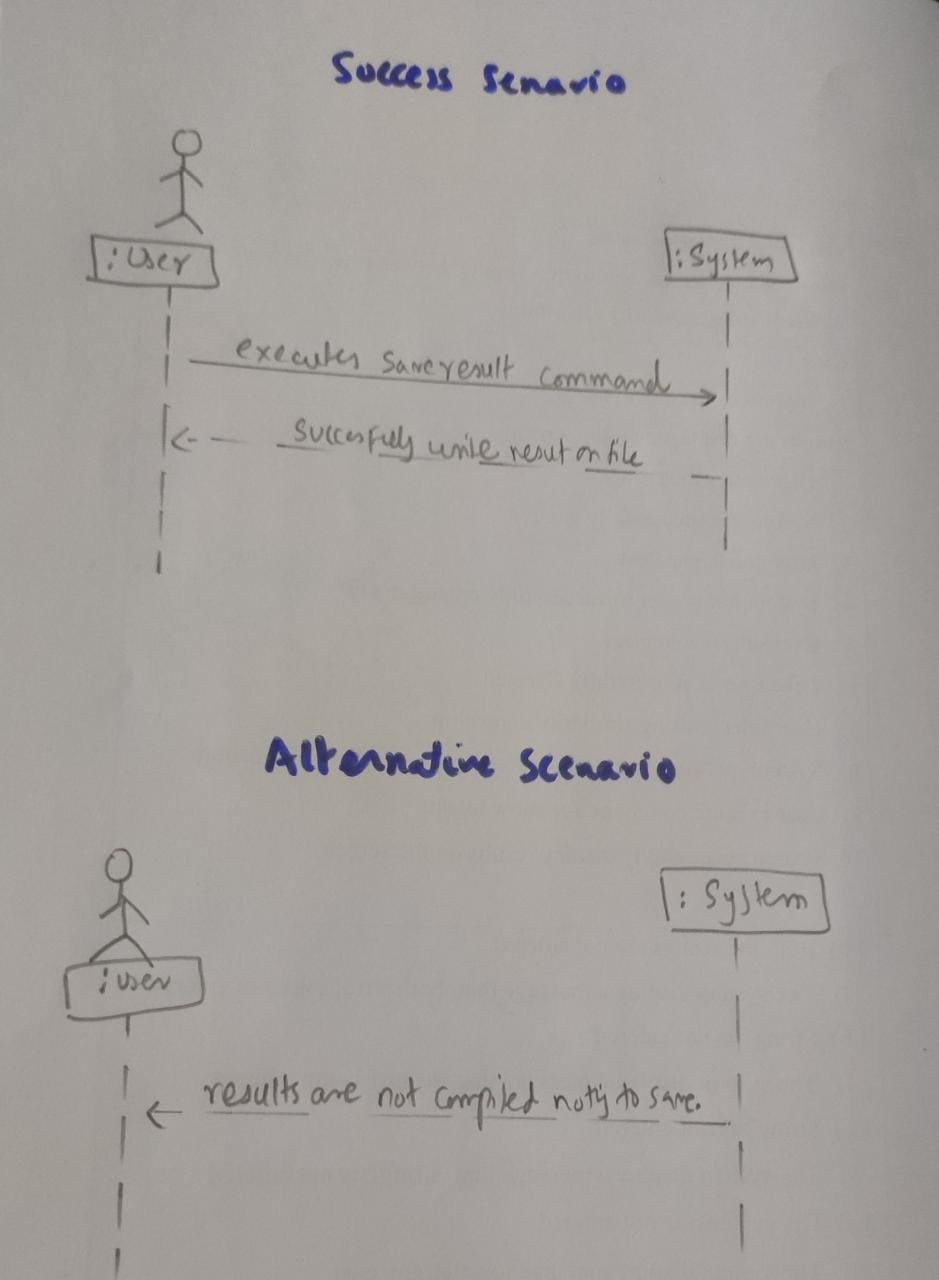 Success Senario
:User
:System
executes saveresult command
Succesfully write resut on file
Alternative Scenario
:user
: System
results are not compiled noty to save.